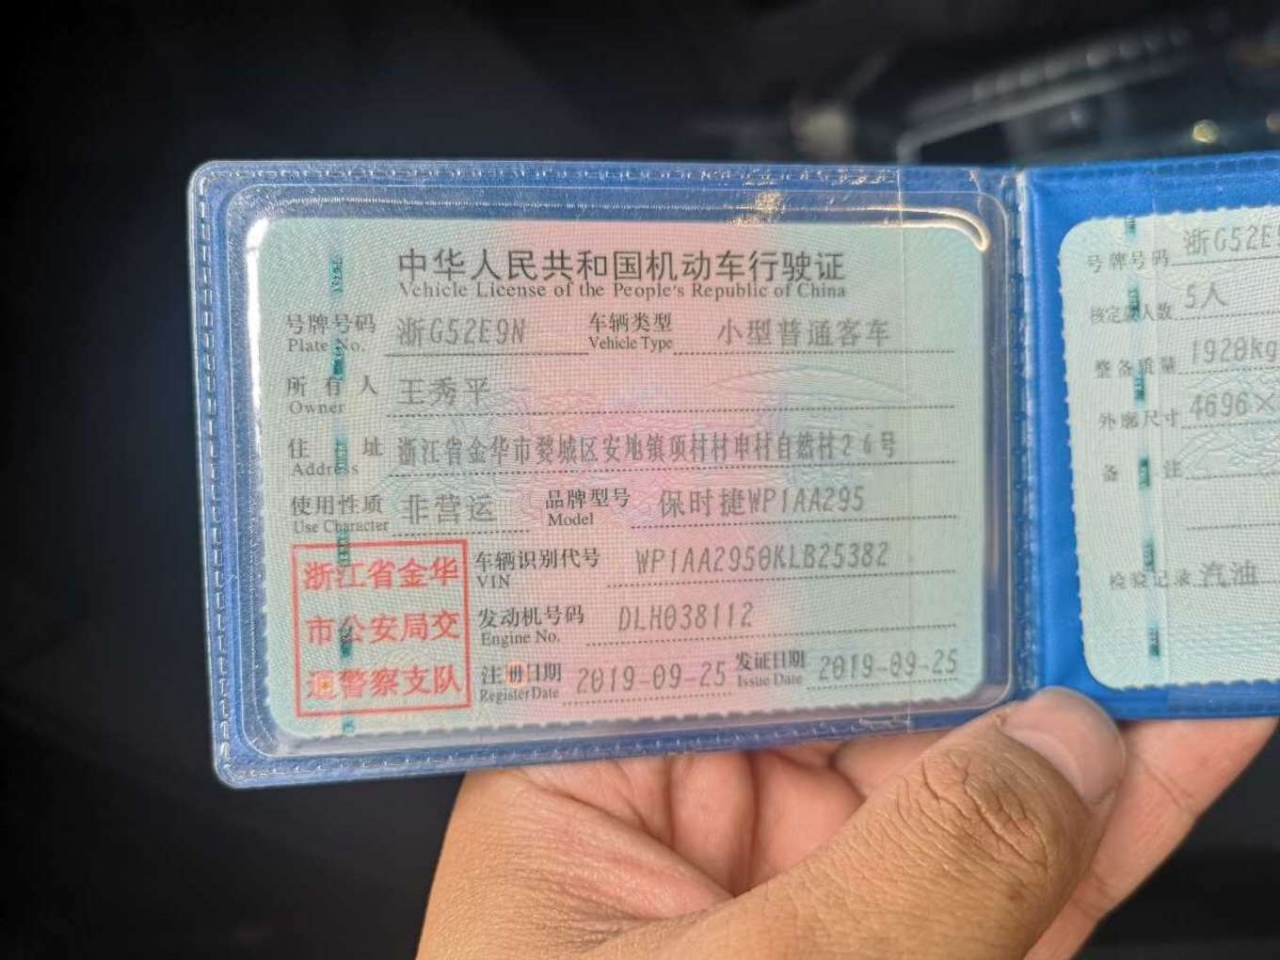 中华人民共和国机动车行驶证
Vehicle License of the People's Republic of China
号牌号码 浙G52E9N 车辆类型 小型普通客车
Plate No. Vehicle Type
所有人 王秀平
Owner
住址 浙江省金华市婺城区安地镇项村村申村自然村26号
Address
使用性质 非营运 品牌型号 保时捷WP1AA295
Use Character Model
浙江省金华
市公安局交
通警察支队
车辆识别代号 WP1AA2950KLB25382
VIN
发动机号码 DLH038112
Engine No.
注册日期 2019-09-25 发证日期 2019-09-25
Register Date Issue Date
号牌号码 浙G52E9
核定载人数 5人
整备质量 1920kg
外廓尺寸 4696×
备注
检验记录 汽油